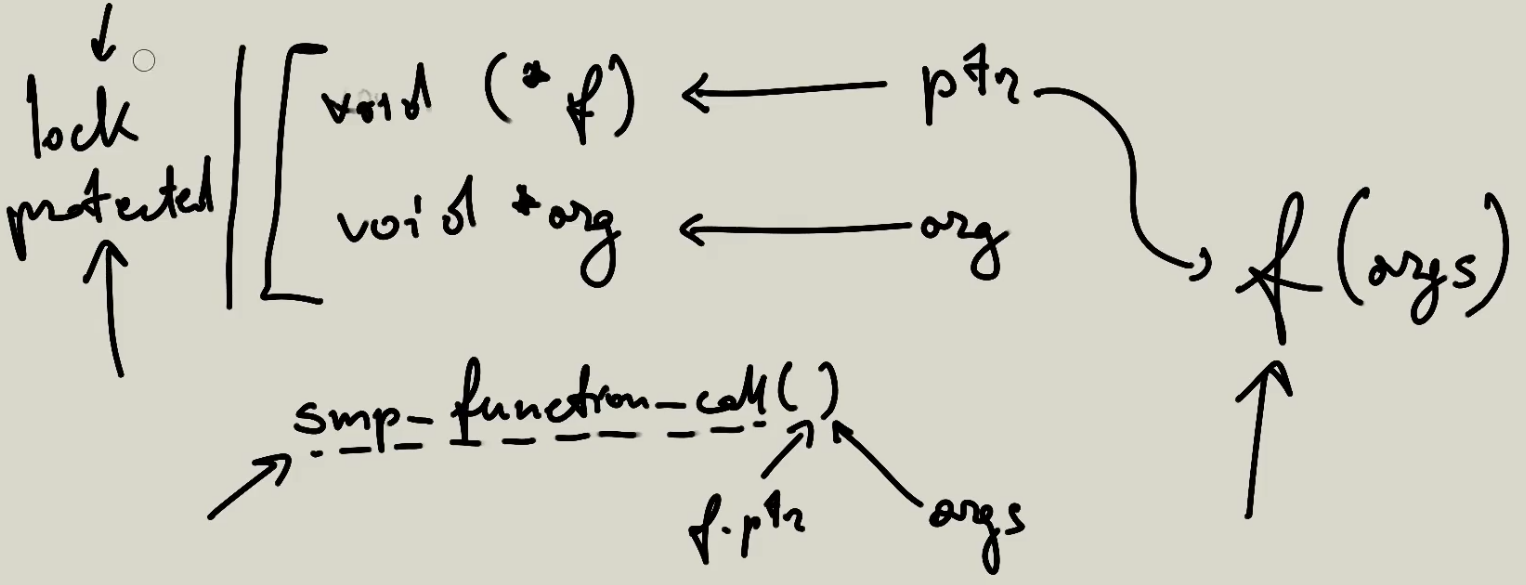 lock
protected
void (*f) ← ptr
void *arg ← arg
f(args)
smp_function_call()
f.ptr
args